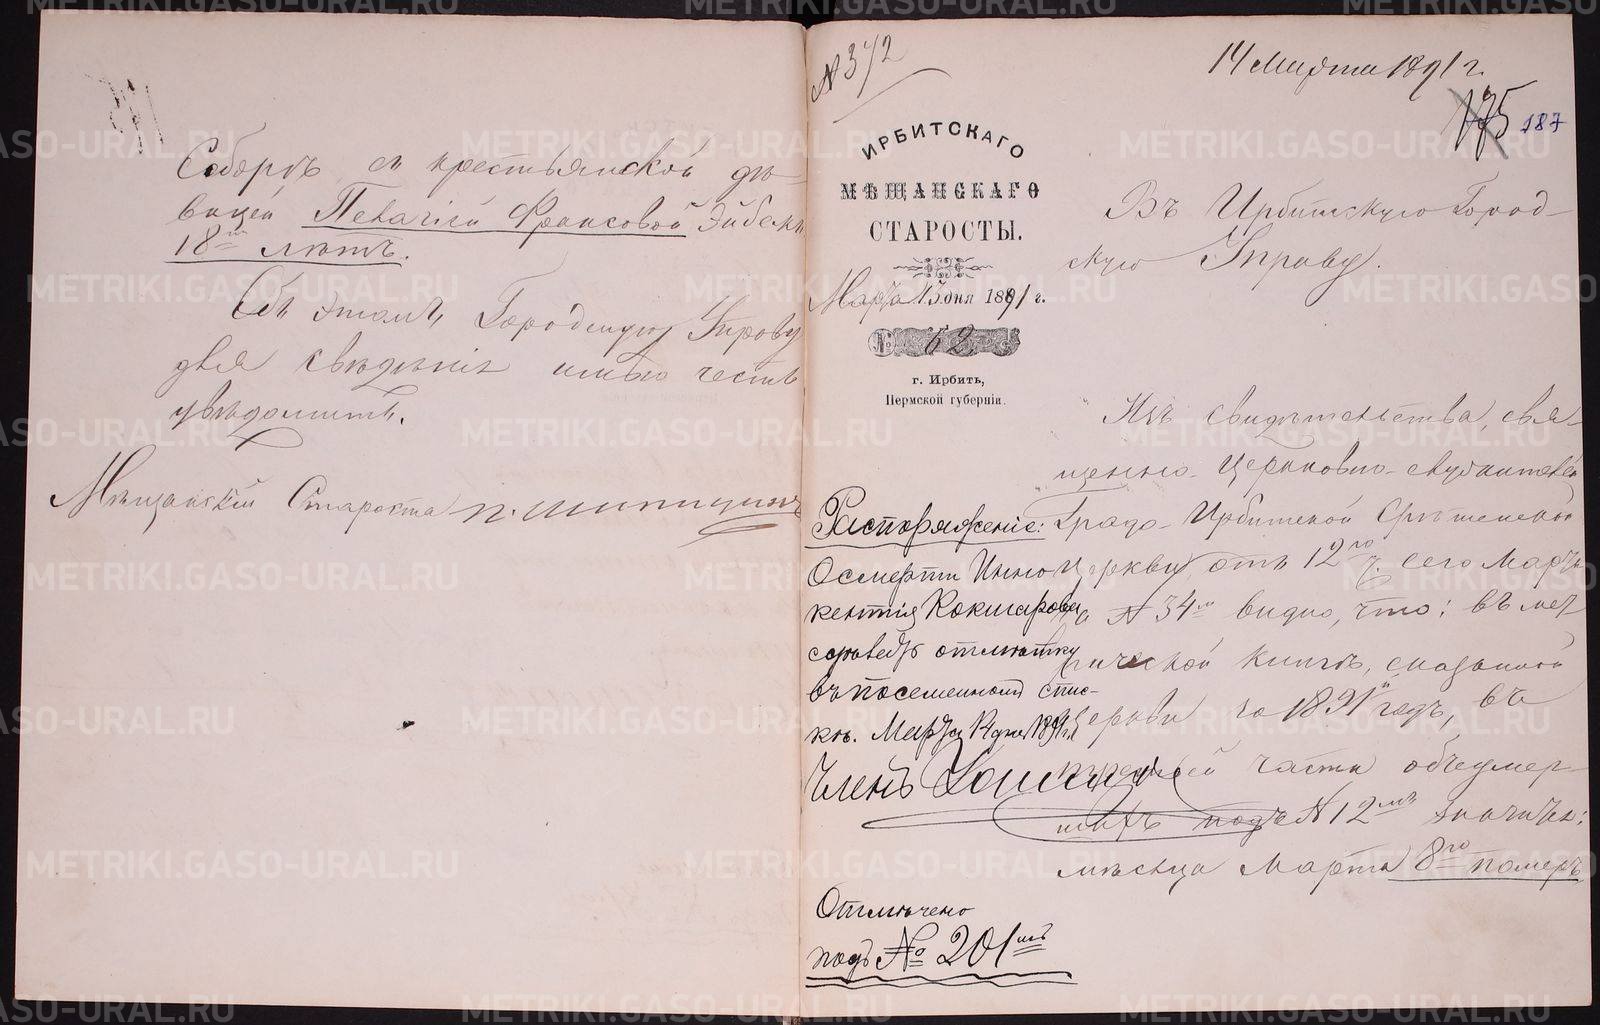 Соборѣ съ крестьянской дѣ-
вицей
18 лѣтъ.
Объ этомъ Городскую Управу
для свѣдѣнія имѣю честь
увѣдомить.
Мѣщанскій Староста П. Шипицинъ
№ 372
14 Марта 1891 г.
175 187
ИРБИТСКАГО
МѢЩАНСКАГО
СТАРОСТЫ.
Марта 13 дня 1891 г.
№ 62
г. Ирбить,
Пермской губерніи.
Въ Ирбитскую Город-
скую Управу.
Изъ свидѣтельства, свя-
щенно-церковно-служителей
Градо-Ирбитской Срѣтенской
церкви, отъ 12го сего Мар-
та № 34 видно, что: въ мет-
рической книгѣ, сказанной
церкви за 1891й годъ, въ
части объ умер-
шихъ подъ № 12мъ значится:
мѣсяца Марта 8го померъ
Распоряженіе:
О смерти Инно-
кентія Кокшарова
отмѣтку
въ посемейномъ спис-
кѣ. Марта 14 дня 1891 г.
Членъ
Отмѣчено
подъ № 201мъ
METRIKI.GASO-URAL.RU